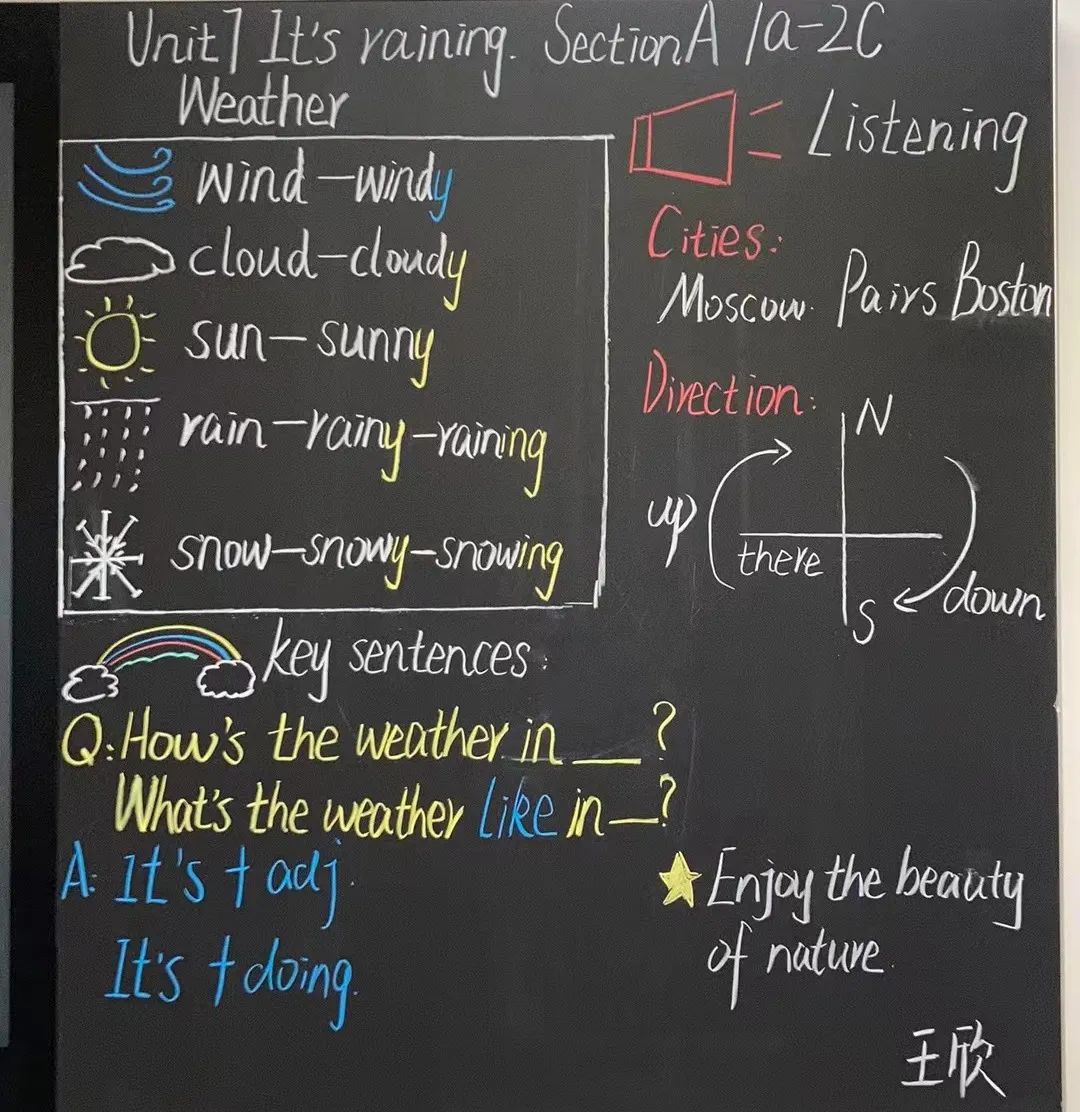 Unit7 It's raining. SectionA 1a-2C
Weather
wind-windy
cloud-cloudy
sun-sunny
rain-rainy-raining
snow-snowy-snowing
key sentences:
Q:How's the weather in __?
What's the weather like in __?
A: It's + adj.
It's + doing.
Listening
Cities:
Moscow. Pairs Boston
Direction:
N
up
there
S
down
Enjoy the beauty
of nature.
王欣